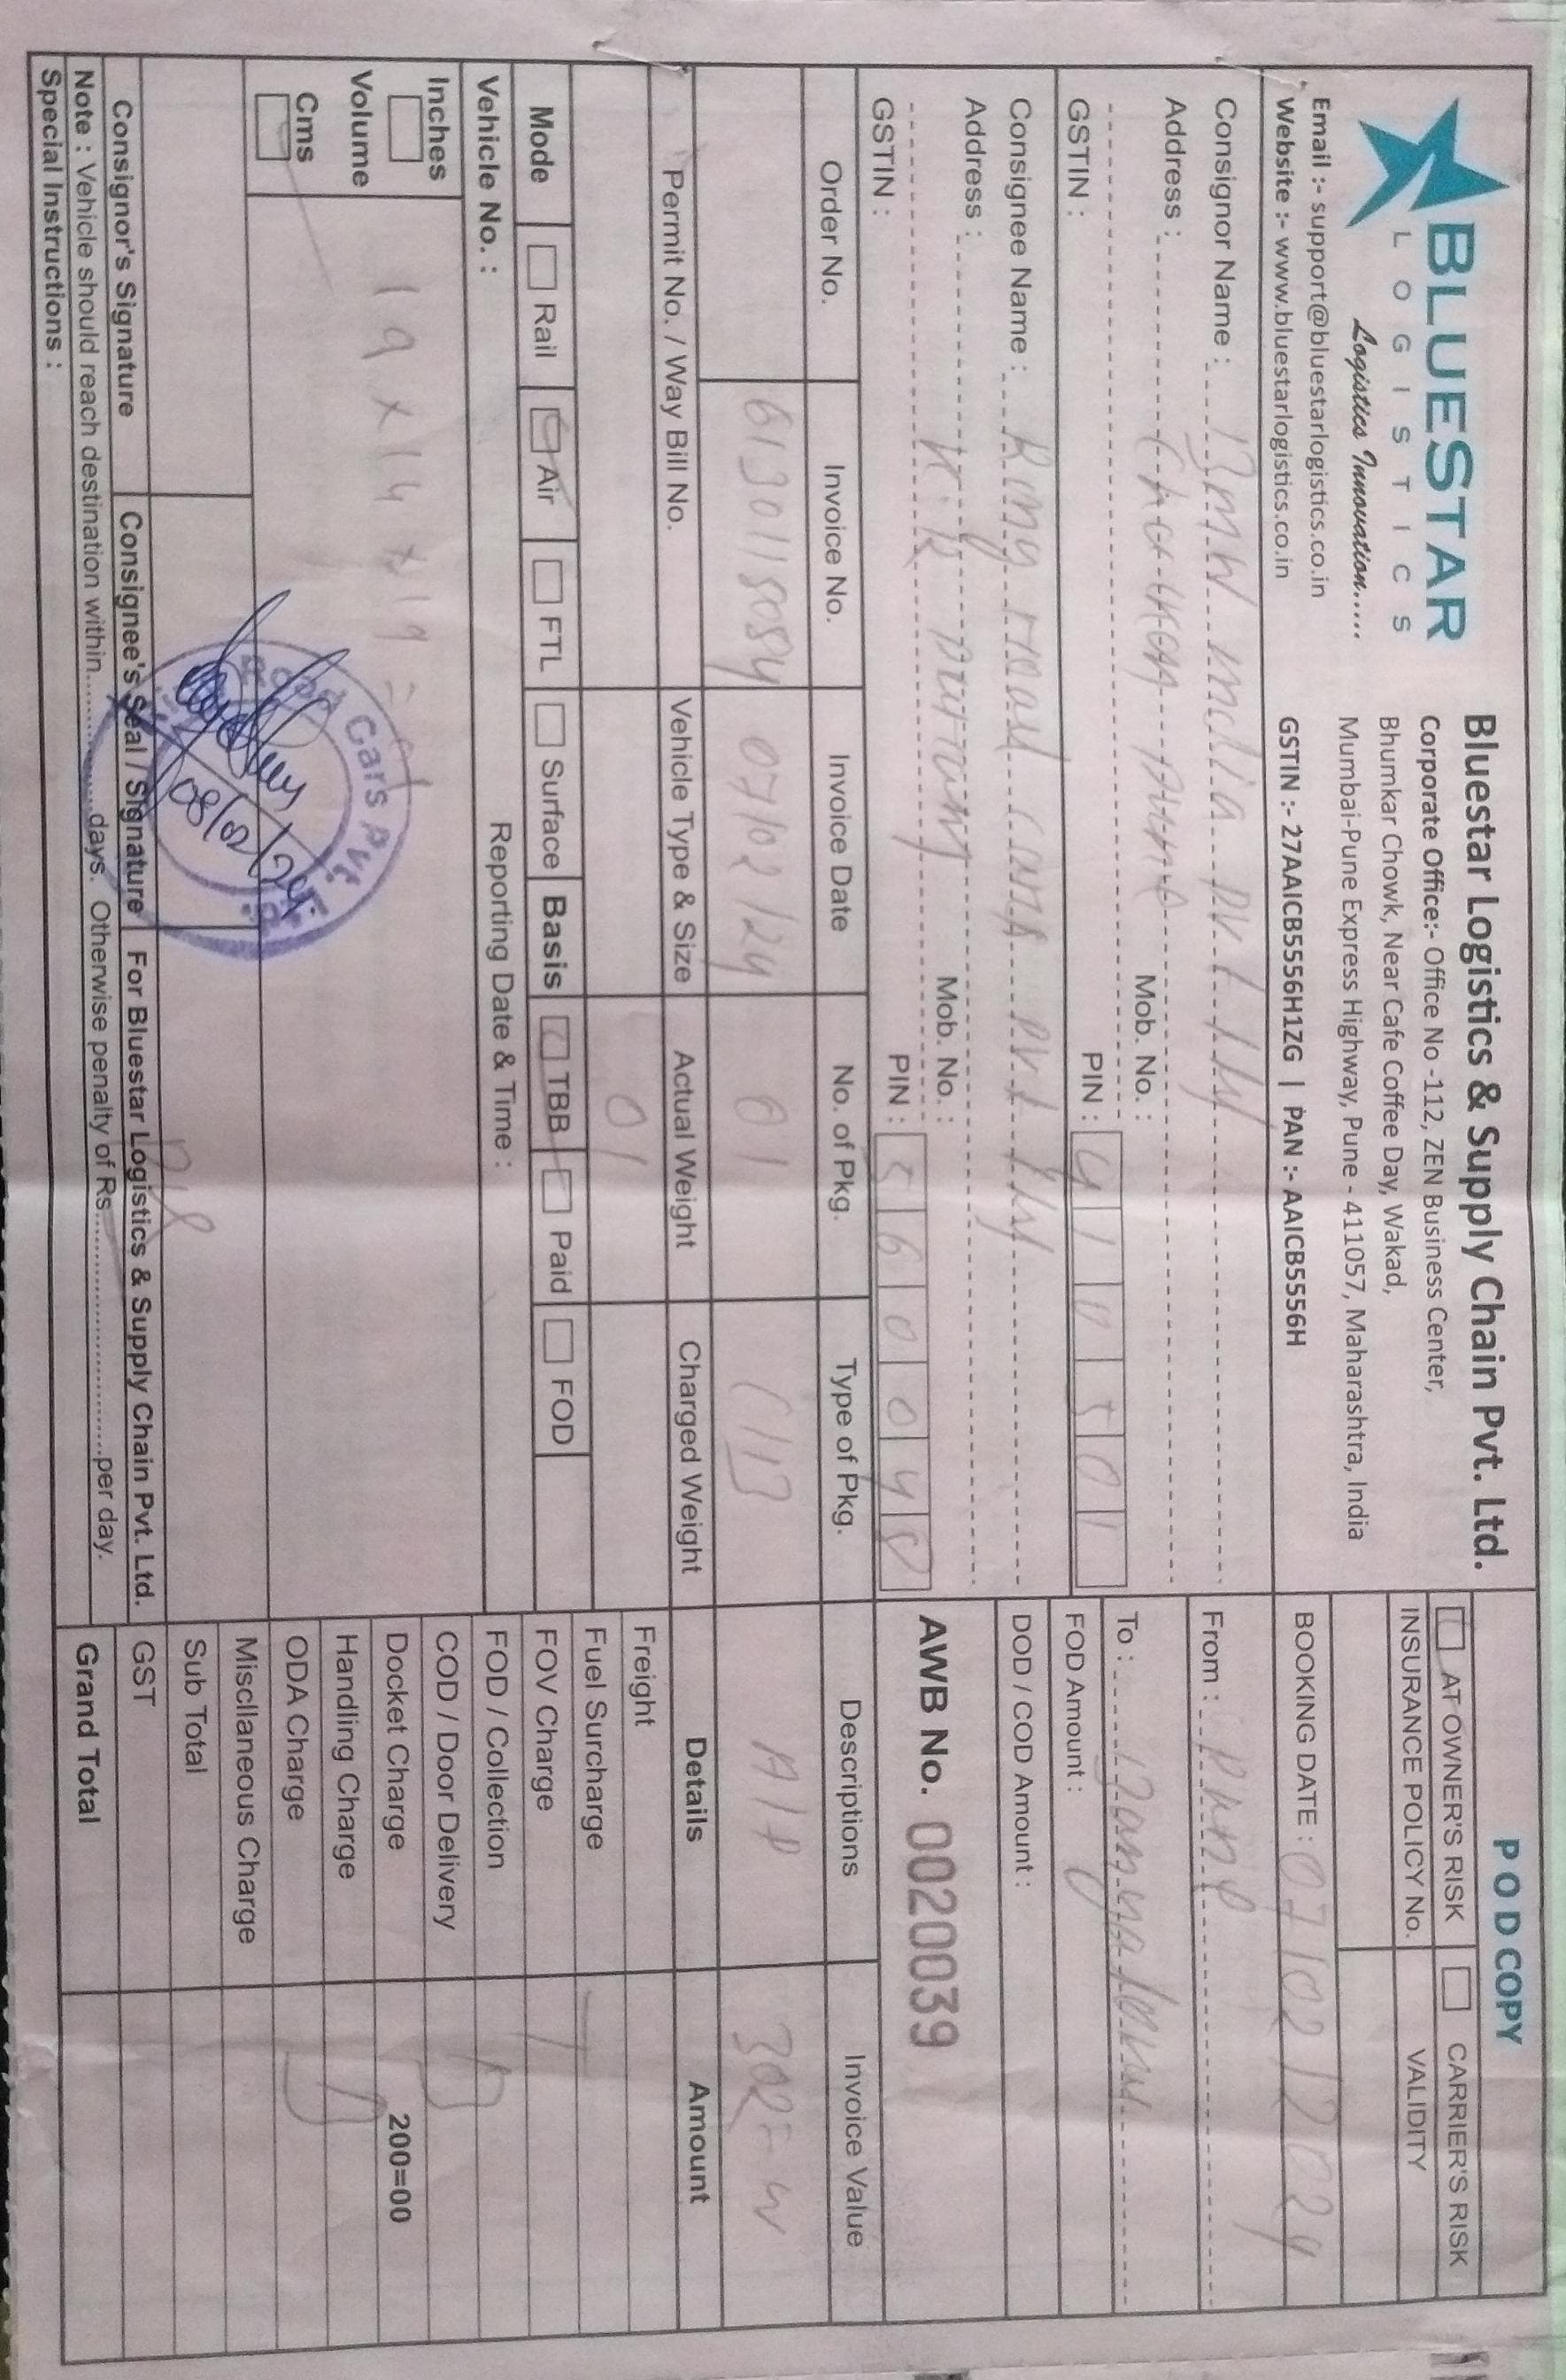 BLUESTAR
LOGISTICS
Logistics Innovation.....
Email :- support@bluestarlogistics.co.in
Website :- www.bluestarlogistics.co.in
Bluestar Logistics & Supply Chain Pvt. Ltd.
Corporate Office:- Office No -112, ZEN Business Center,
Bhumkar Chowk, Near Cafe Coffee Day, Wakad,
Mumbai-Pune Express Highway, Pune - 411057, Maharashtra, India
GSTIN :- 27AAICB5556H1ZG | PAN :- AAICB5556H
P O D COPY
AT OWNER'S RISK CARRIER'S RISK
INSURANCE POLICY No. VALIDITY
BOOKING DATE : 07/02/2024
Consignor Name : BMW India pvt ltd
Address : Chakan pune
Mob. No. :
PIN : 410501
GSTIN :
From : Pune
To :
FOD Amount :
DOD / COD Amount :
Consignee Name : Ring road cars pvt ltd
Address : K.R
Mob. No. :
PIN : 560048
GSTIN :
AWB No. 0020039
Order No. Invoice No. Invoice Date No. of Pkg. Type of Pkg. Descriptions Invoice Value
6130118084 07/02/24 01 A/P
Permit No. / Way Bill No. Vehicle Type & Size Actual Weight Charged Weight
01
Mode Rail Air FTL Surface Basis TBB Paid FOD
Vehicle No. : Reporting Date & Time :
Inches
Volume
Cms
19 x 14 x 19 = 01
Road Cars Pvt. Ltd.
08/02/24
Details Amount
Freight
Fuel Surcharge
FOV Charge
FOD / Collection
COD / Door Delivery
Docket Charge 200=00
Handling Charge
ODA Charge
Miscllaneous Charge
Sub Total
GST
Grand Total
T
B
B
Consignor's Signature Consignee's Seal / Signature For Bluestar Logistics & Supply Chain Pvt. Ltd.
Note : Vehicle should reach destination within...............days. Otherwise penalty of Rs...........................per day.
Special Instructions :